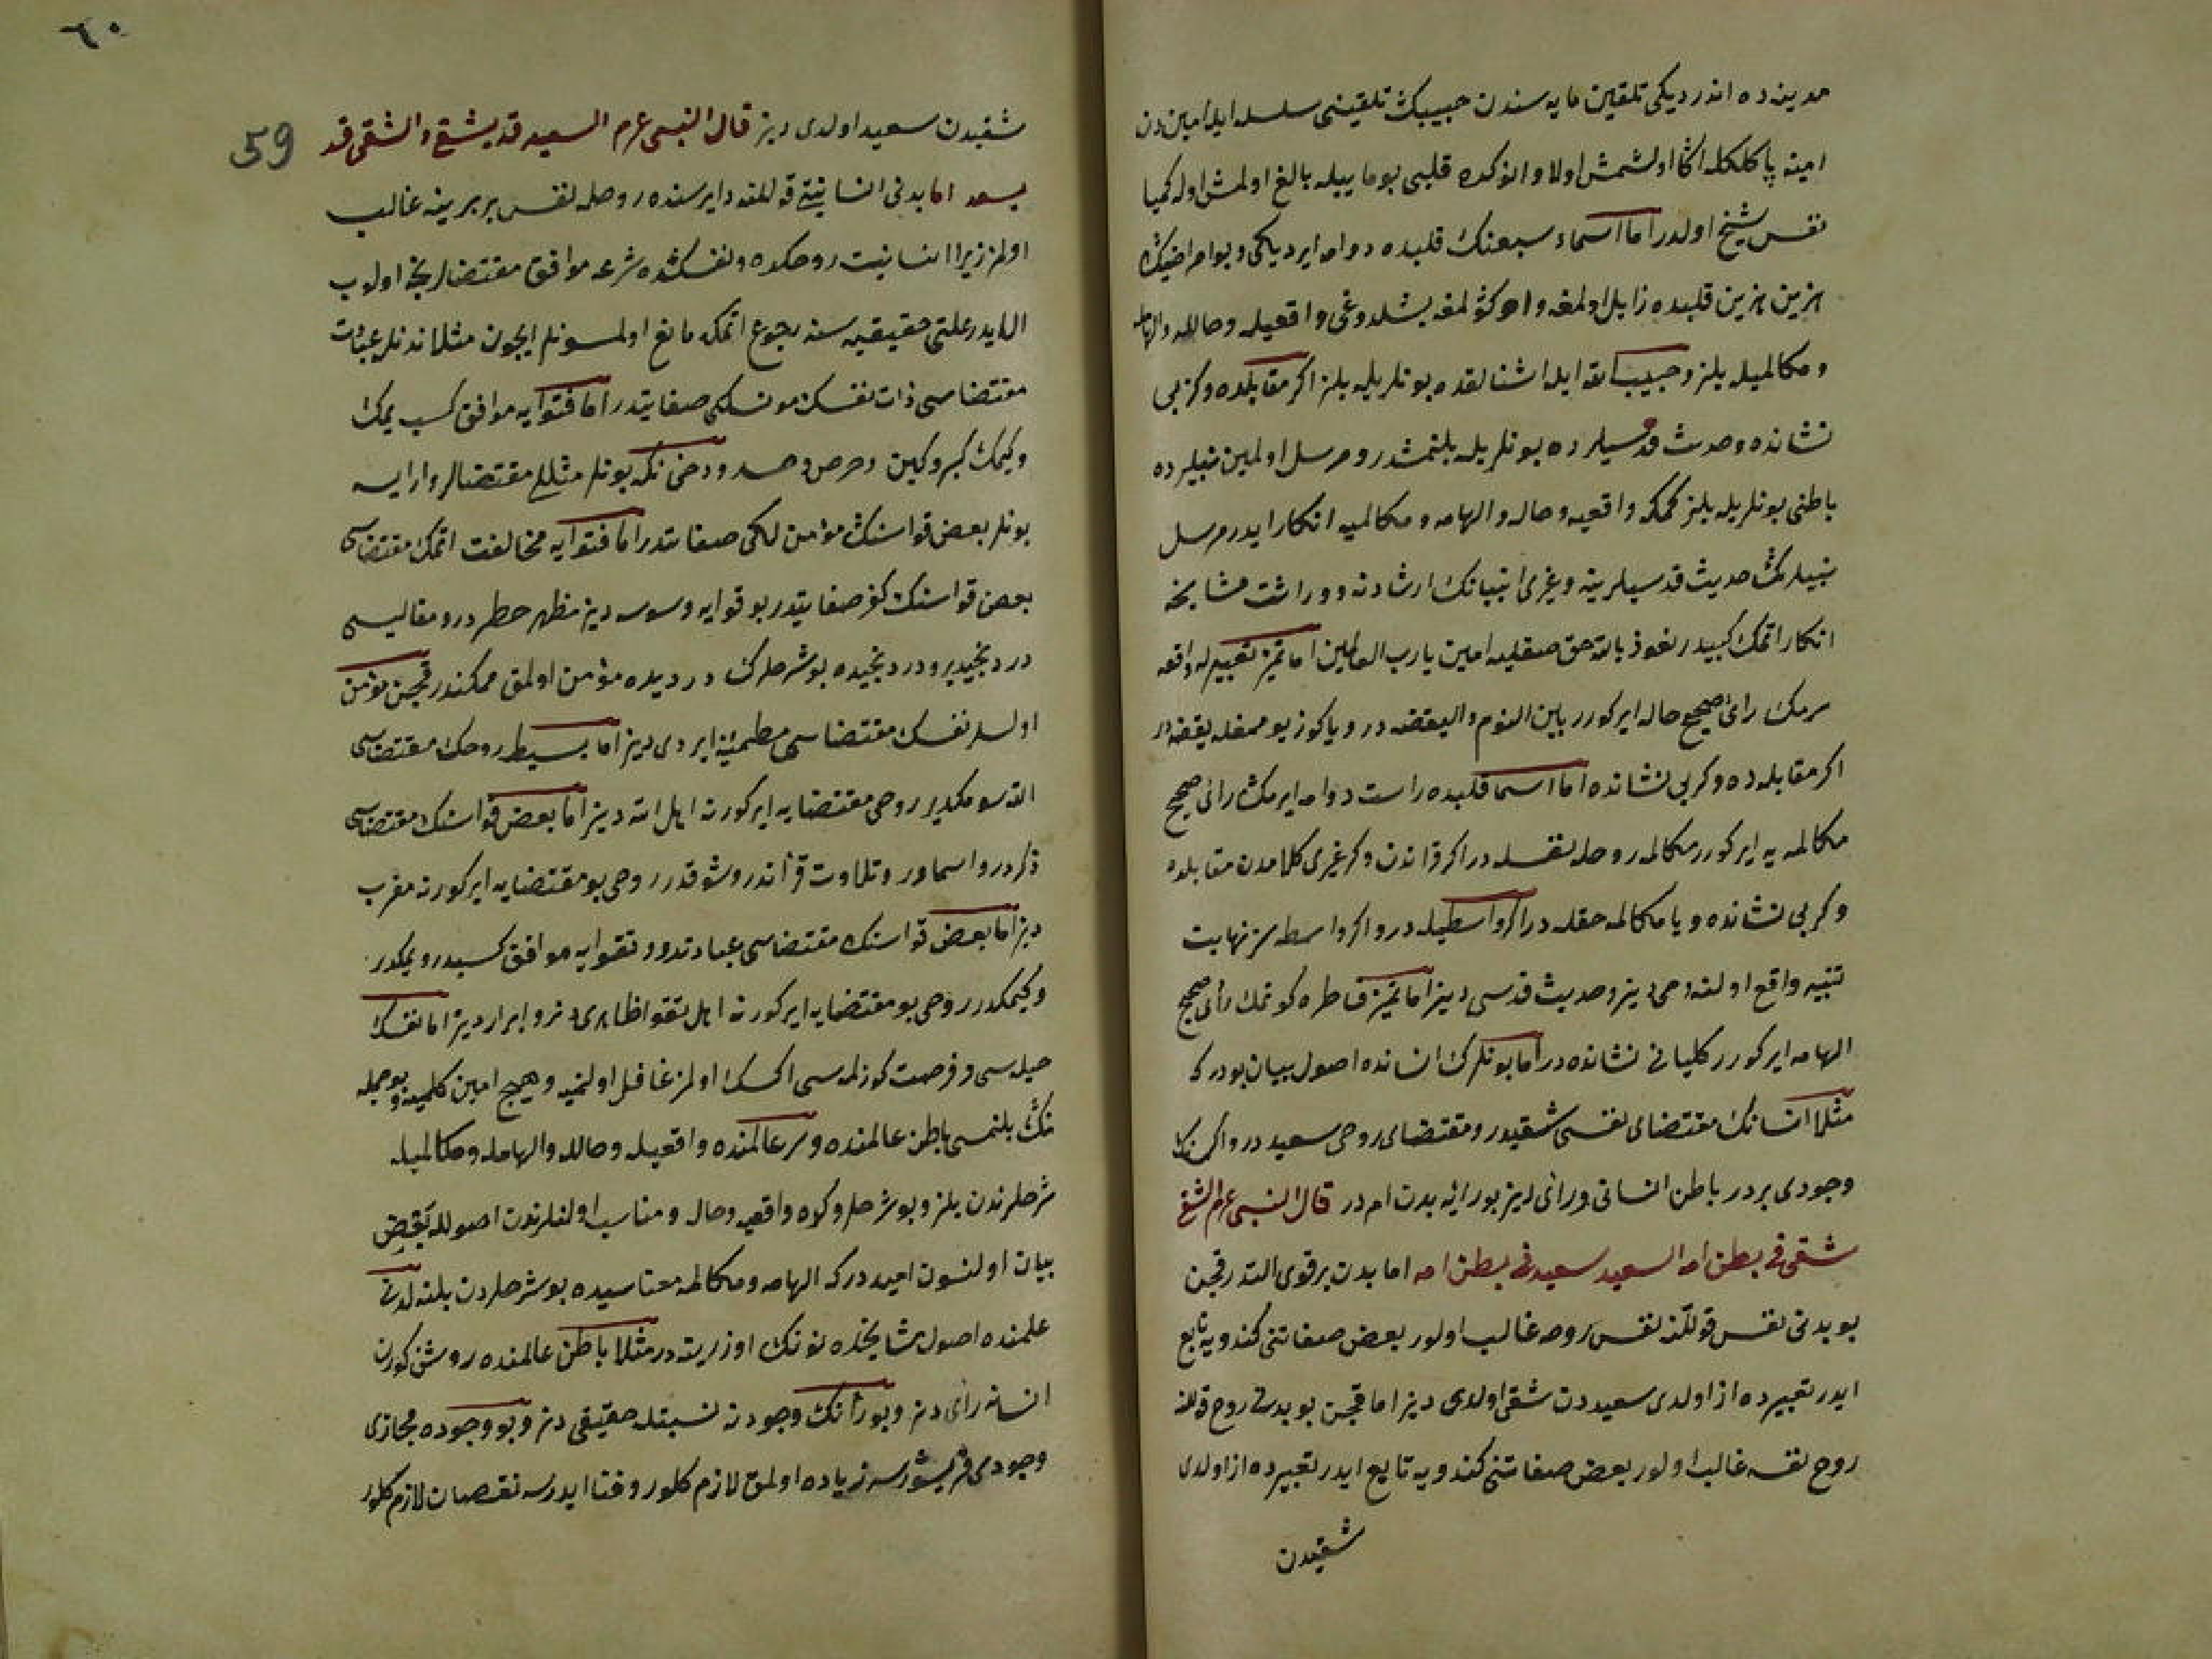 مدینه ده اندردیکی تلقین مایه سندن حبیبك تلقینی سلسله ایله امین دن
امینه اولشمش اولا قلبی بو مایه ایله بالغ اولمش اوله
نفس شیخ اولدر اما اسماء سبعنك قلبده دوام ایردیلکی
قلبده زایل اولمغه واقعیله وحالله
ومکالمیله بلنز وحبیب الله ایله اشنالقده بونلر یله بلنز اکر مقابلده وکر بی
نشانده وحدیث قدسیلرده بونلر یله بلنمشدر ومرسل اولمین نبیلرده
باطنی بونلر یله بلنز کمکه واقعیه وحاله والهامه ومکالمیه انکار ایدر مرسل
نبیلرك حدیث قدسیلرینه وغیری انبیانك ارشادنه ووراثت مشایخه
انکار اتمك کبیدر نعوذ بالله حق صقلیه امین یارب العالمین اما تمیز تعبیرله واقعه
صحیح حاله ایرکورر بین النوم والیقظه در
اکر مقابلده وکر بی نشانده اما اسما قلبده راست دوامه ایرمك رائ صحیح
مکالمه یه ایرکورر مکالمه روحله نفسله در اکر قراندن وکر غیری کلامدن مقابلده
وکر بی نشانده ویا مکالمه حقله در اکر واسطیله در واکر واسطه سز نهایت
تنبیه واقع اولنه وحی دینز وحدیث قدسی دینز اما تمیز خاطره کونمك رائ صحیح
الهامه ایرکورر کلیاتی نشانده در اما بونلرك انسانده اصول بیان بودر که
مثلا انسانك مقتضای نفسی شقیدر ومقتضای روحی سعیددر
وجودی بردر باطن انسانی ورائ دینز بو رائیه بدن ام در قال النبی عرم الشقی
شقی فی بطن امه السعید سعید فی بطن امه اما بدن بر قوی التدر قچن
بو بدنی نفس قوللنه نفس روحه غالب اولور بعض صفاتنی کندویه تابع
ایدر تعبیرده از اولدی سعیددن شقی اولدی دینز اما قچن بو بدنی روح قوللنه
روح نفسه غالب اولور بعض صفاتنی کندویه تابع ایدر تعبیرده از اولدی
شقیدن
٦٠
59
شقیدن سعید اولدی دینز قال النبی عرم السعید قد یشقی والشقی قد
یسعد اما بدنی انسانیتی قوللنه دایرسنده روحله نفس بر برینه غالب
اولمز زیرا انسانیت روحکده ونفسکده شرعه موافق مقتضالر اولوب
علتی حقیقیه سنه رجوع اتمکه مانع اولمسونلر ایچون مثلا
مقتضاسی ذات نفسك صفاتیدر اما فتوایه موافق کسب یمك
وکیمك کبر وکین وحرص وحسد ودخی نکه بونلر مثللی مقتضالر وار ایسه
بونلر بعض قواسنك مؤمن لکی صفاتیدر اما فتوایه مخالفت اتمك مقتضاسی
بعض قواسنك کفر صفاتیدر بو قوایه وسوسه دینز مظهر خطر در
بو شرحلرك دردیده مؤمن اولمق ممکندر قچن مؤمن
اولسه نفسك مقتضاسی مطمئنه ایردی دینز اما بسیط روحك مقتضاسی
الله سومکدر روحی مقتضایه ایرکورنه اهل الله دینز اما بعض قواسنك مقتضاسی
ذکردر واسمادر وتلاوت قرآندر وشوقدر روحی بو مقتضایه ایرکورنه مقرب
دینز اما بعض قواسنك مقتضاسی عبادتدر وتقوایه موافق کسبدر ویمکدر
وکیمکدر روحی بو مقتضایه ایرکورنه اهل تقوا ظاهری دینز وابرار دینز اما نفسك
حیله سی وفرصت کوزلمسی اکسك اولمز غافل اولنمیه وهیچ امین کلمیه وبو جمله
نك بلنمسی باطن عالمنده وسر عالمنده واقعیله وحالله والهامله ومکالمیله
شرحلرندن بلنز وبو شرحلر واقعیه وحاله ومناسب اولنلرندن اصولله بعض
بیان اولنسون امیددر که الهامه ومکالمه مناسبده بو شرحلردن بلنه لدنی
علمنده اصول مشایخده بونك اوزرینه در مثلا باطن عالمنده روشن کورن
انسانه رائ دینز وبو رائنك وجودنه نسبتله حقیقی دینز وبو وجوده مجازی
زیاده اولمق لازم کلور وفنا ایدرسه نقصان لازم کلور